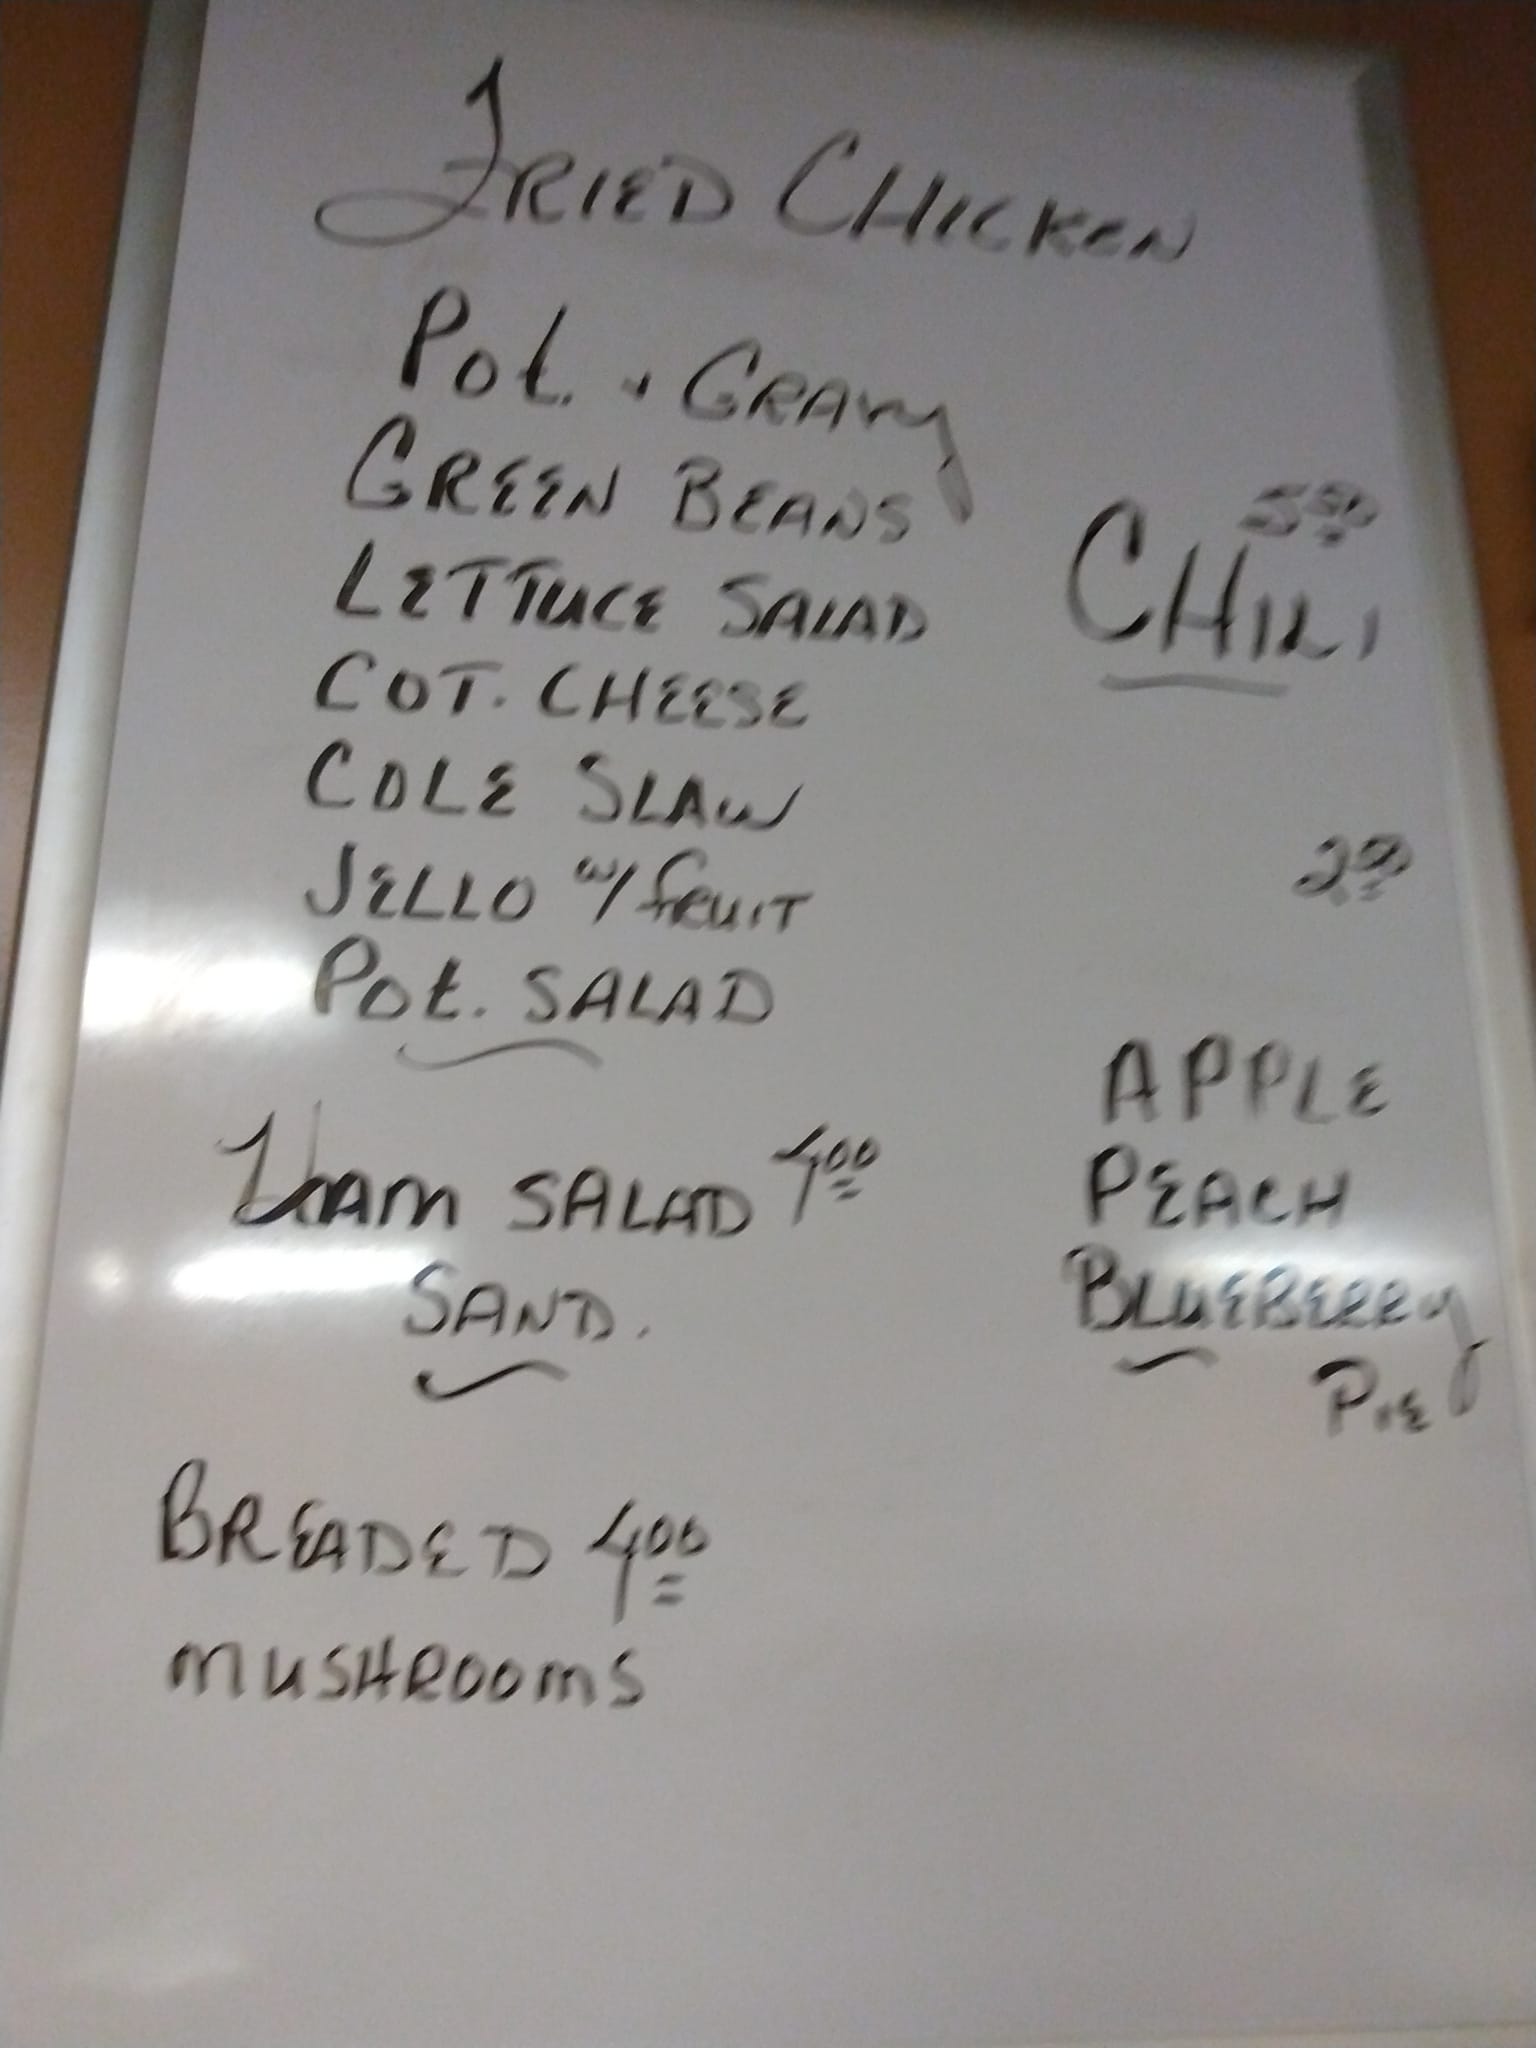 FRIED CHICKEN
Pot. + GRAVY
GREEN BEANS
LETTUCE SALAD
COT. CHEESE
COLE SLAW
JELLO w/ fRUIT
Pot. SALAD
HAM SALAD 4.00
SAND.
BREADED 4.00
MUSHROOMS
5.50
CHILI
APPLE
PEACH
BLUEBERRY
PIE